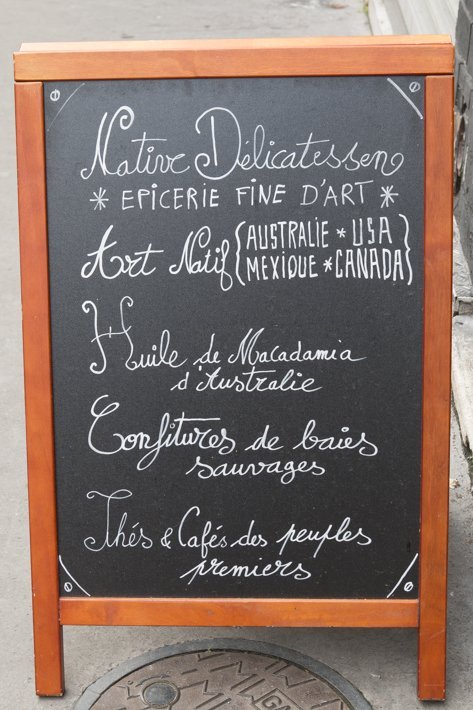 Native Délicatessen
* EPICERIE FINE D'ART *
Art Natif { AUSTRALIE * USA
MEXIQUE * CANADA }
Huile de Macadamia
d'Australie
Confitures de baies
sauvages
Thés & Cafés des peuples
premiers